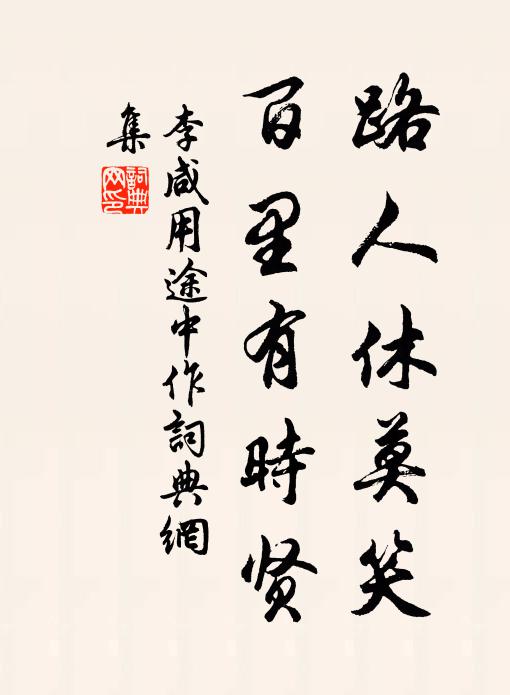 路人休莫笑
百里有時贤
李咸用途中作詞典網
集
詞典
网印